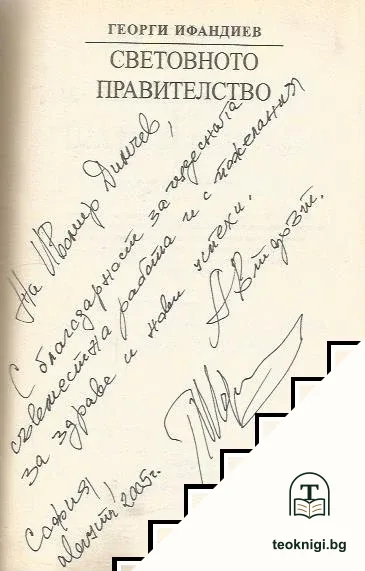 ГЕОРГИ ИФАНДИЕВ
СВЕТОВНОТО
ПРАВИТЕЛСТВО
На Ивомир Динчев,
С благодарност за чудесната
съвместна работа и с пожелания
за здраве и нови успехи.
Авторът.
София,
август 2005 г.
T
teoknigi.bg